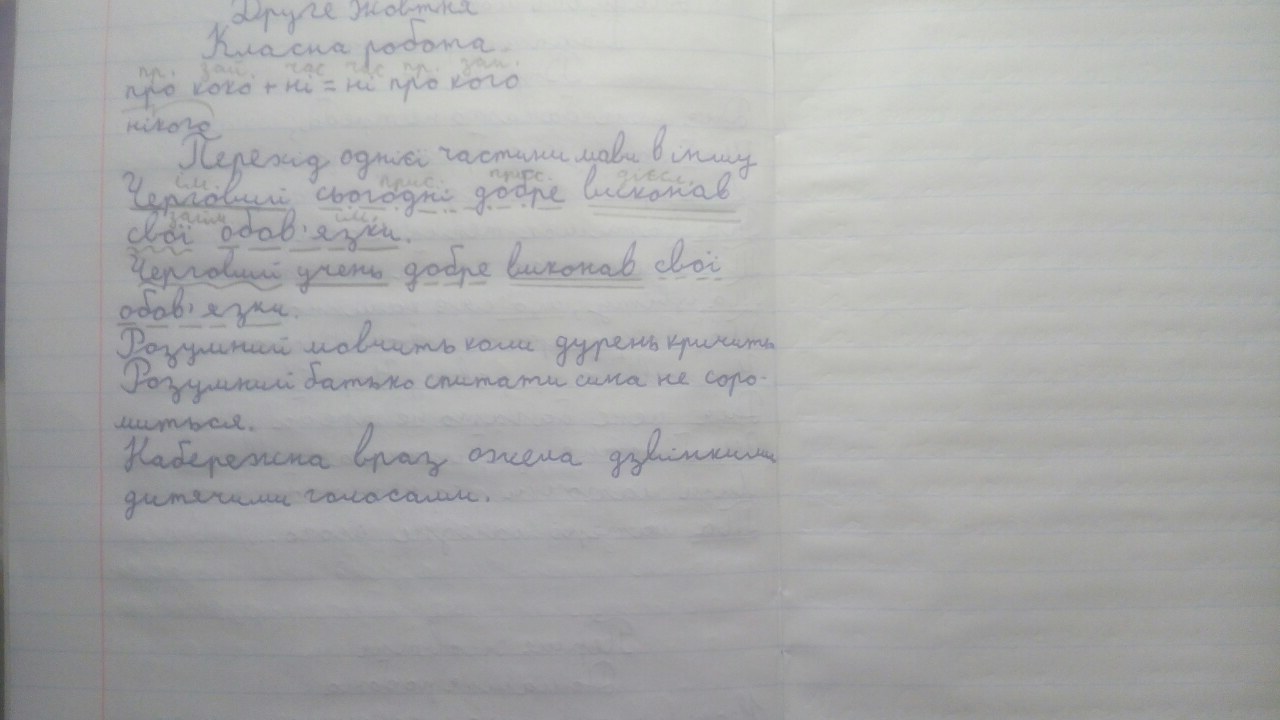 Друге жовтня
Класна робота.
пр. зай. час час пр. зай.
про кого + ні = ні про кого
нікого
Перехід однієї частини мови в іншу
ім. присл. присл. дієсл.
Черговий сьогодні добре виконав
займ. ім.
свої обов'язки.
Черговий учень добре виконав свої
обов'язки.
Розумний мовчить коли дурень кричить
Розумний батько спитати сина не соро-
миться.
Набережна враз ожела дзвінкими
дитячими голосами.